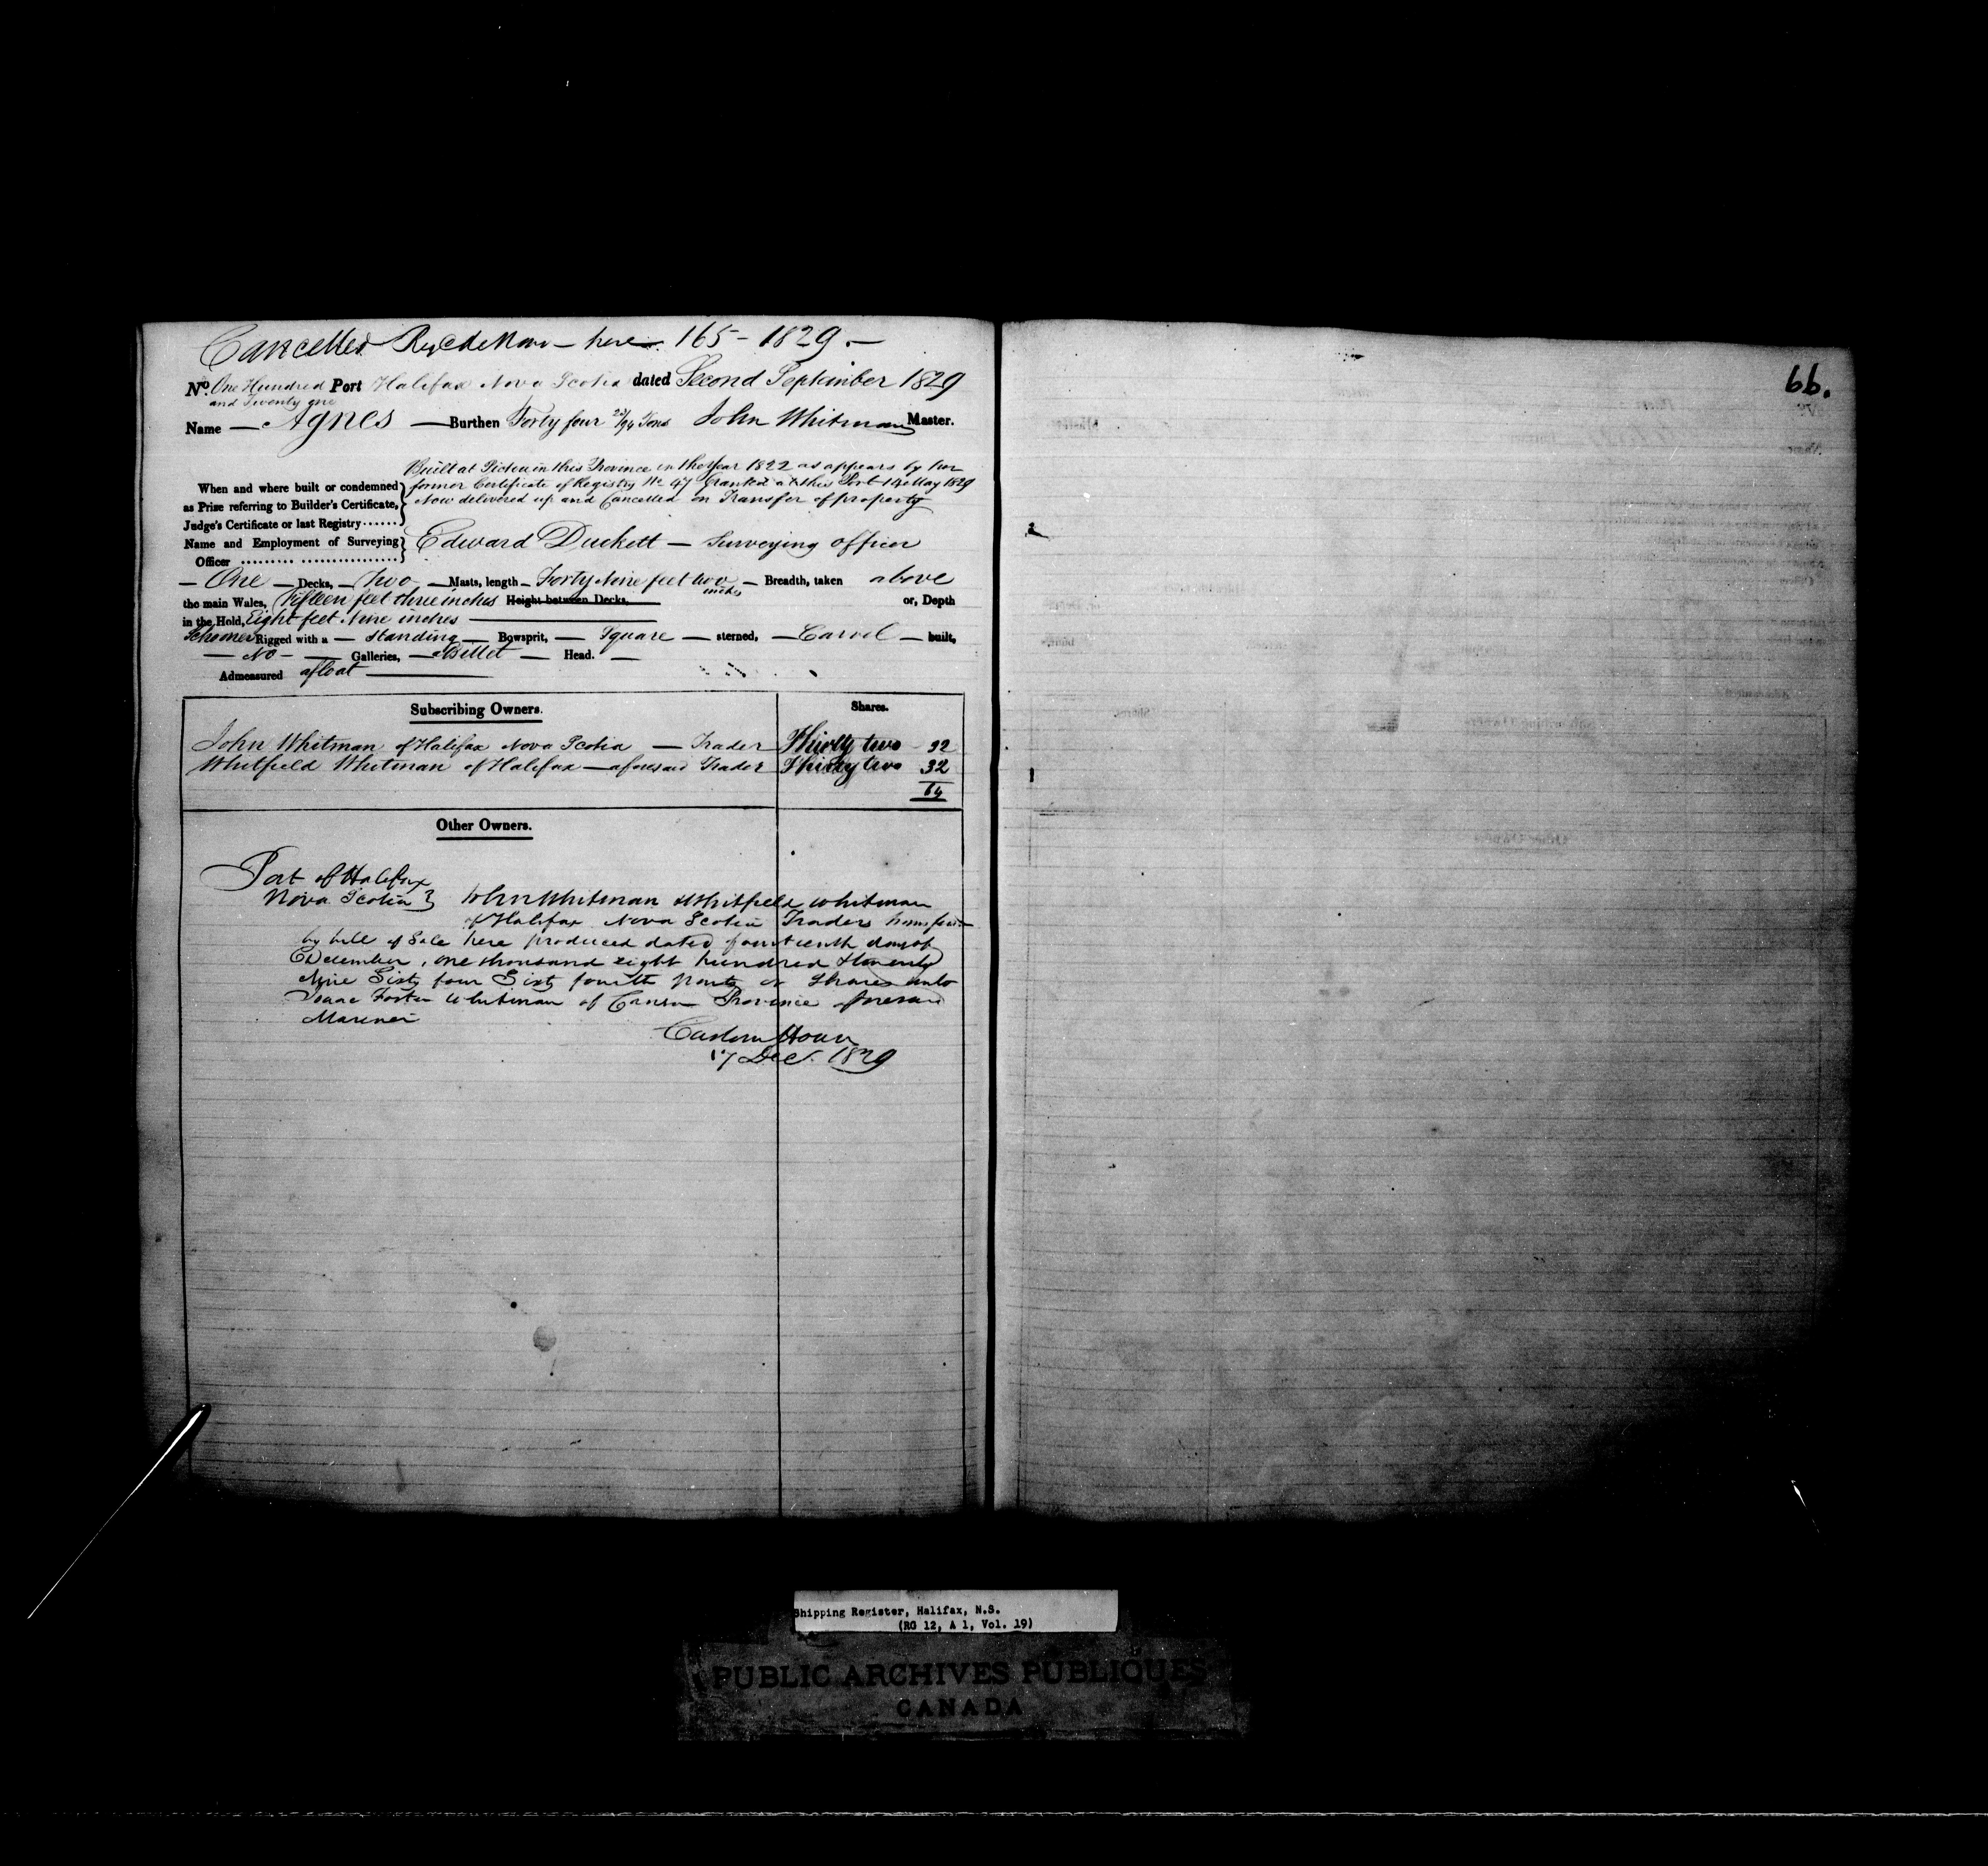 Cancelled Regd de Novo - here 165 - 1829. -
No. One Hundred and Twenty one Port Halifax Nova Scotia dated Second September 1829
Name - Agnes - Burthen Forty four 23/94 Tons John Whitman Master.
Built at Pictou in this Province in the Year 1822 as appears by her
When and where built or condemned former Certificate of Registry No 47 Granted at this Port 14 May 1829
as Prize referring to Builder's Certificate, Now delivered up and Cancelled on Transfer of property
Judge's Certificate or last Registry
Name and Employment of Surveying Edward Duckett - Surveying officer
Officer
- One - Decks, - Two - Masts, length - Forty Nine feet two inches - Breadth, taken above
the main Wales, Fifteen feet three inches Height between Decks, or, Depth
in the Hold, Eight feet Nine inches
Schooner Rigged with a - standing - Bowsprit, - Square - sterned, - Carvel - built,
- No - Galleries, - a Billet - Head. -
Admeasured afloat
Subscribing Owners. Shares.
John Whitman of Halifax Nova Scotia - Trader Thirty two - 32
Whitfield Whitman of Halifax - aforesaid Trader Thirty two 32
64
Other Owners.
Port of Halifax
Nova Scotia } John Whitman & Whitfield Whitman
of Halifax Nova Scotia Traders transfer
by bill of Sale here produced dated fourteenth day of
December, one thousand eight hundred & twenty
Nine Sixty four Sixty fourth parts or Shares unto
Isaac Foster Whitman of Canso Province aforesaid
Mariner
Custom House
17 Dec. 1829
66.
Shipping Register, Halifax, N.S.
(RG 12, A 1, Vol. 19)
PUBLIC ARCHIVES PUBLIQUES
CANADA